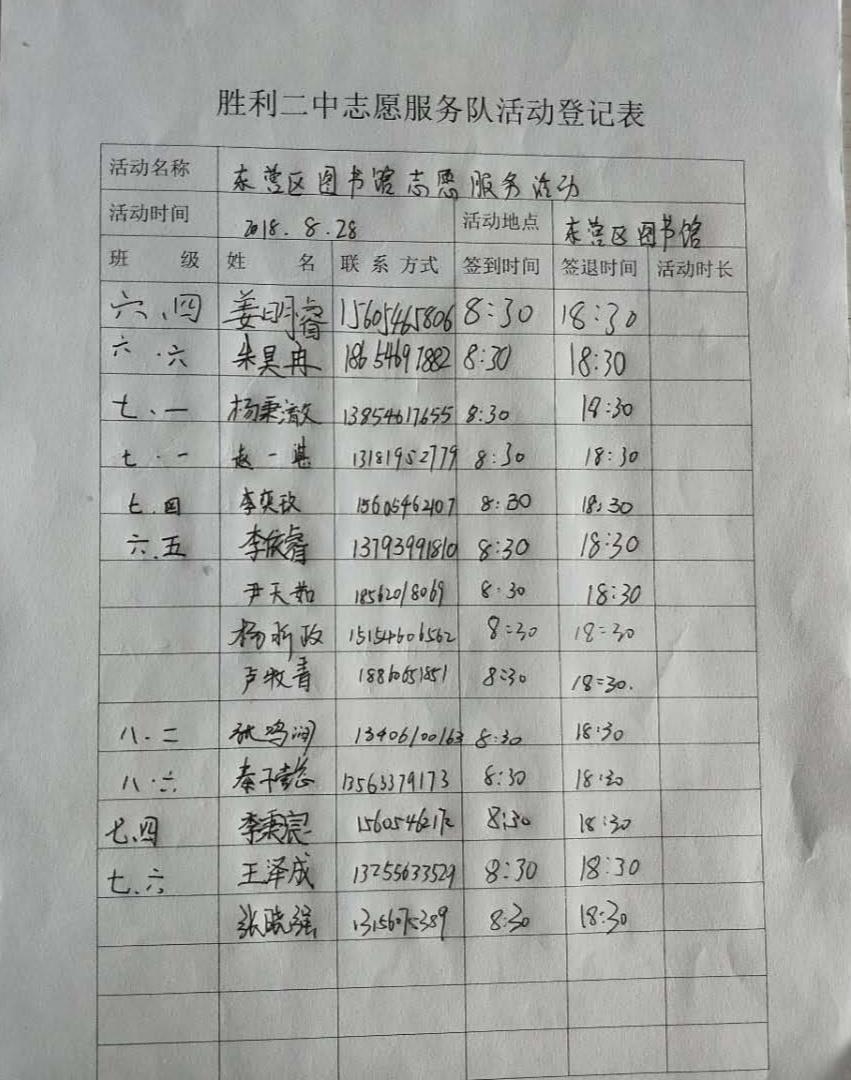 胜利二中志愿服务队活动登记表
活动名称 东营区图书馆志愿服务活动
活动时间 2018.8.28 活动地点 东营区图书馆
班 级 姓 名 联系方式 签到时间 签退时间 活动时长
六.四 姜明睿 15605465806 8:30 18:30
六.六 朱昊冉 18654691882 8:30 18:30
七.一 杨秉澈 13854617655 8:30 18:30
七.一 赵一 13181952779 8:30 18:30
七.四 李奕玫 15605462107 8:30 18:30
六.五 李依睿 13793991810 8:30 18:30
尹天茹 18562018069 8:30 18:30
杨昕政 15154606562 8:30 18:30
卢牧青 8:30 18:30.
八.二 张鸣润 13406100163 8:30 18:30
八.六 秦 13563379173 8:30 18:30
七.四 李秉宸 8:30 18:30
七.六 王泽成 13255633529 8:30 18:30
张晓强 8:30 18:30